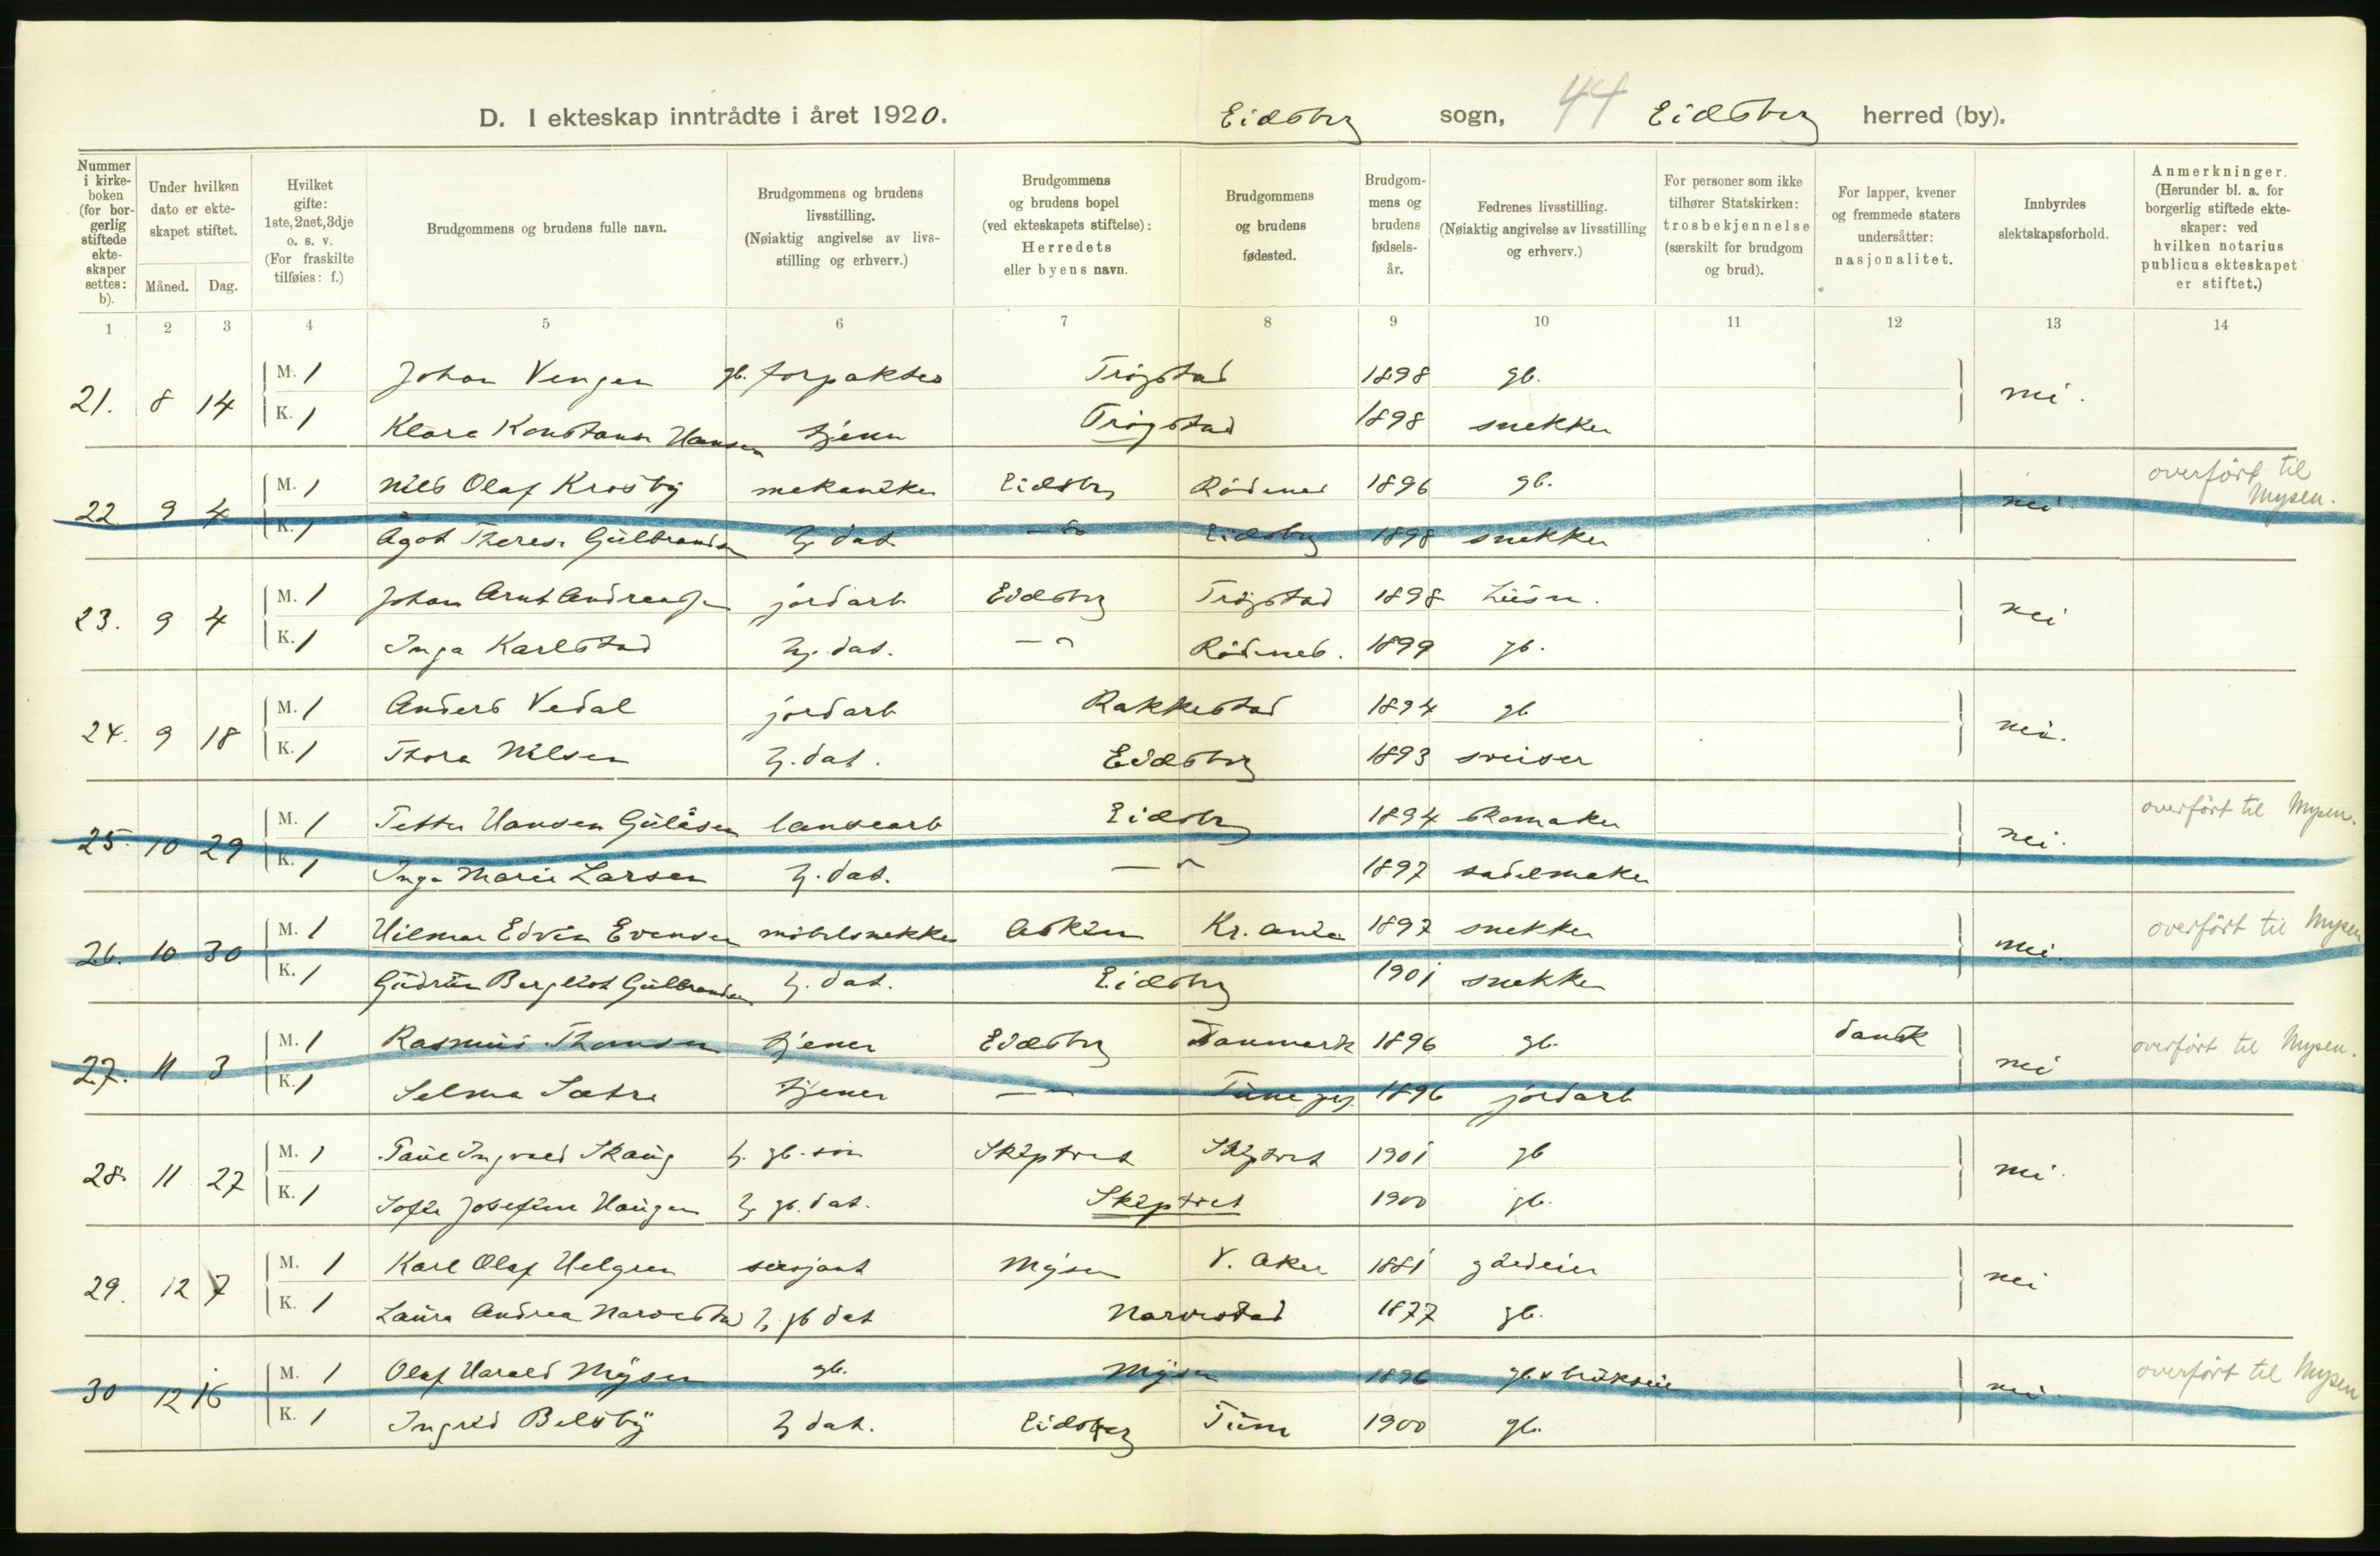 D. I ekteskap inntrådte i året 1920. Eidsberg sogn, 44 Eidsberg herred (by).
Nummer i kirkeboken (for borgerlig stiftede ekteskaper settes: b).
Under hvilken dato er ekteskapet stiftet.
Måned. Dag.
Hvilket gifte: 1ste, 2net, 3dje o. s. v. (For fraskilte tilføies: f.)
Brudgommens og brudens fulle navn.
Brudgommens og brudens livsstilling. (Nøiaktig angivelse av livsstilling og erhverv.)
Brudgommens og brudens bopel (ved ekteskapets stiftelse): Herredets eller byens navn.
Brudgommens og brudens fødested.
Brudgommens og brudens fødselsår.
Fedrenes livsstilling. (Nøiaktig angivelse av livsstilling og erhverv.)
For personer som ikke tilhører Statskirken: trosbekjennelse (særskilt for brudgom og brud).
For lapper, kvener og fremmede staters undersåtter: nasjonalitet.
Innbyrdes slektskapsforhold.
Anmerkninger. (Herunder bl. a. for borgerlig stiftede ekteskaper: ved hvilken notarius publicus ekteskapet er stiftet.)
1 2 3 4 5 6 7 8 9 10 11 12 13 14
21. 8 14 M. 1 Johan Vengen gb. forpakter Trøgstad 1898 gb. nei.
K. 1 Klara Konstanse Hansen tjener Trøgstad 1898 snekker
22 9 4 M. 1 Nils Olaf Krosby mekaniker Eidsberg Rødenes 1896 gb. nei. overført til Mysen.
K. 1 Ågot Therese Gulbrandsen h. dat. — " Eidsberg 1898 snekker
23. 9 4 M. 1 Johan Arnt Andreassen jordarb Eidsberg Trøgstad 1898 Husm. nei
K. 1 Inga Karlstad hj. dat. — " Rødenes. 1899 gb.
24. 9 18 M. 1 Anders Vedal jordarb Rakkestad 1894 gb nei.
K. 1 Thora Nilsen h. dat. Eidsberg 1893 sveiser
25. 10 29 M. 1 Petter Hansen Gulåsen Eidsberg 1894 skomaker nei. overført til Mysen.
K. 1 Inga Marie Larsen h. dat. — " 1897 sadelmaker
26. 10 30 M. 1 Hilmar Edvin Evensen møbelsnekker Askim Kr. ania 1897 snekker nei. overført til Mysen
K. 1 Gudrun Bergliot Gulbrandsen h. dat. Eidsberg 1901 snekker
27. 11 3 M. 1 Rasmus Thomsen tjener Eidsberg Danmark 1896 gb. dansk nei overført til Mysen.
K. 1 Selma Sætre tjener — " Tune 1896 jordarb
28. 11 27 M. 1 Paul Ingvald Skaug h. gb. søn Skiptvet Skiptvet 1901 gb nei.
K. 1 Sofie Josefine Haugen h. gb. dat. Skiptvet 1900 gb.
29. 12 7 M. 1 Karl Olaf Helgren sersjant Mysen V. Aker 1881 gårdeier nei
K. 1 Laura Andrea Narvestad h. gb dat Narvestad 1877 gb.
30 12 16 M. 1 Olaf Harald Mysen gb. Mysen 1896 gb. & brukseier nei. overført til Mysen
K. 1 Ingrid Belsby h dat. Eidsberg Tune 1900 gb.